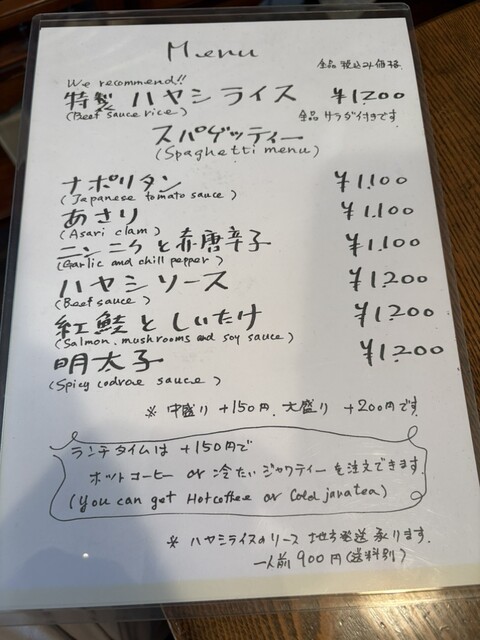 Menu
全品 税込み価格
We recommend!!
特製 ハヤシライス ¥1200
(Beef sauce rice) 全品 サラダ付きです
スパゲッティー
(Spaghetti menu)
ナポリタン ¥1,100
(Japanese tomato sauce)
あさり ¥1,100
(Asari clam)
ニンニクと赤唐辛子 ¥1,100
(Garlic and chill pepper)
ハヤシソース ¥1,200
(Beef sauce)
紅鮭としいたけ ¥1,200
(Salmon, mushrooms and soy sauce)
明太子 ¥1,200
(Spicy codroe sauce)
※ 中盛り +150円、大盛り +200円です
ランチタイムは +150円で
ホットコーヒー or 冷たいジャワティーを注文できます。
(you can get Hotcoffee or Cold javatea)
※ ハヤシライスのソース 地方発送承ります。
一人前 900円(送料別)